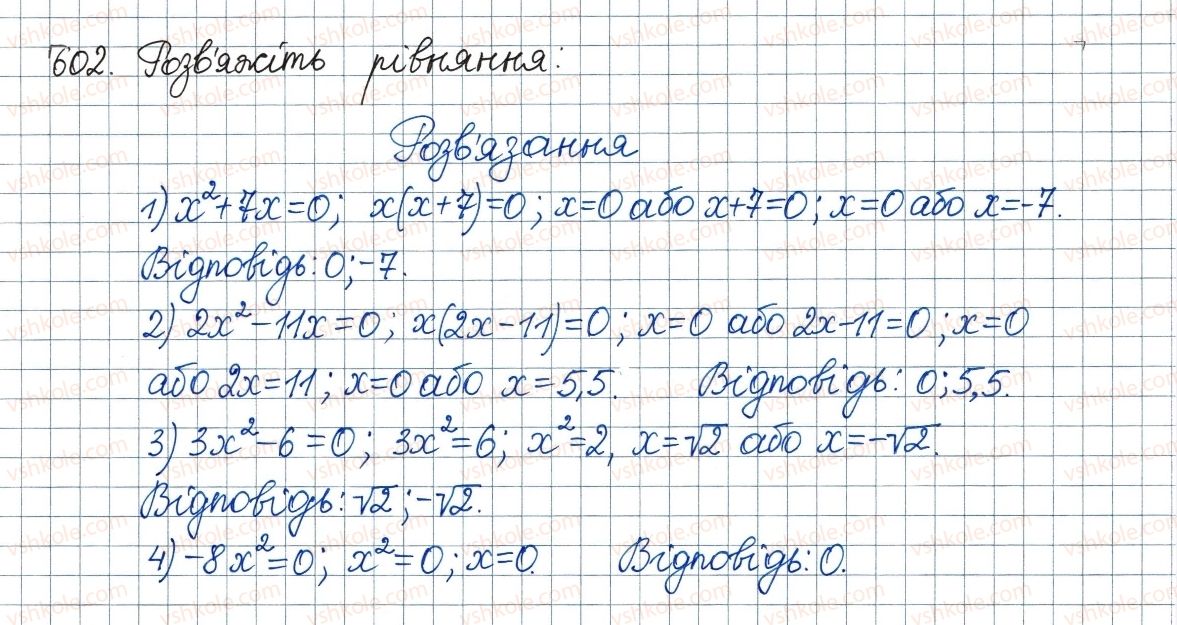 602. Розв'яжіть рівняння:
Розв'язання
1) x²+7x=0; x(x+7)=0; x=0 або x+7=0; x=0 або x=-7.
Відповідь: 0; -7.
2) 2x²-11x=0; x(2x-11)=0; x=0 або 2x-11=0; x=0
або 2x=11; x=0 або x=5,5. Відповідь: 0; 5,5.
3) 3x²-6=0; 3x²=6; x²=2, x=√2 або x=-√2.
Відповідь: √2; -√2.
4) -8x²=0; x²=0; x=0. Відповідь: 0.